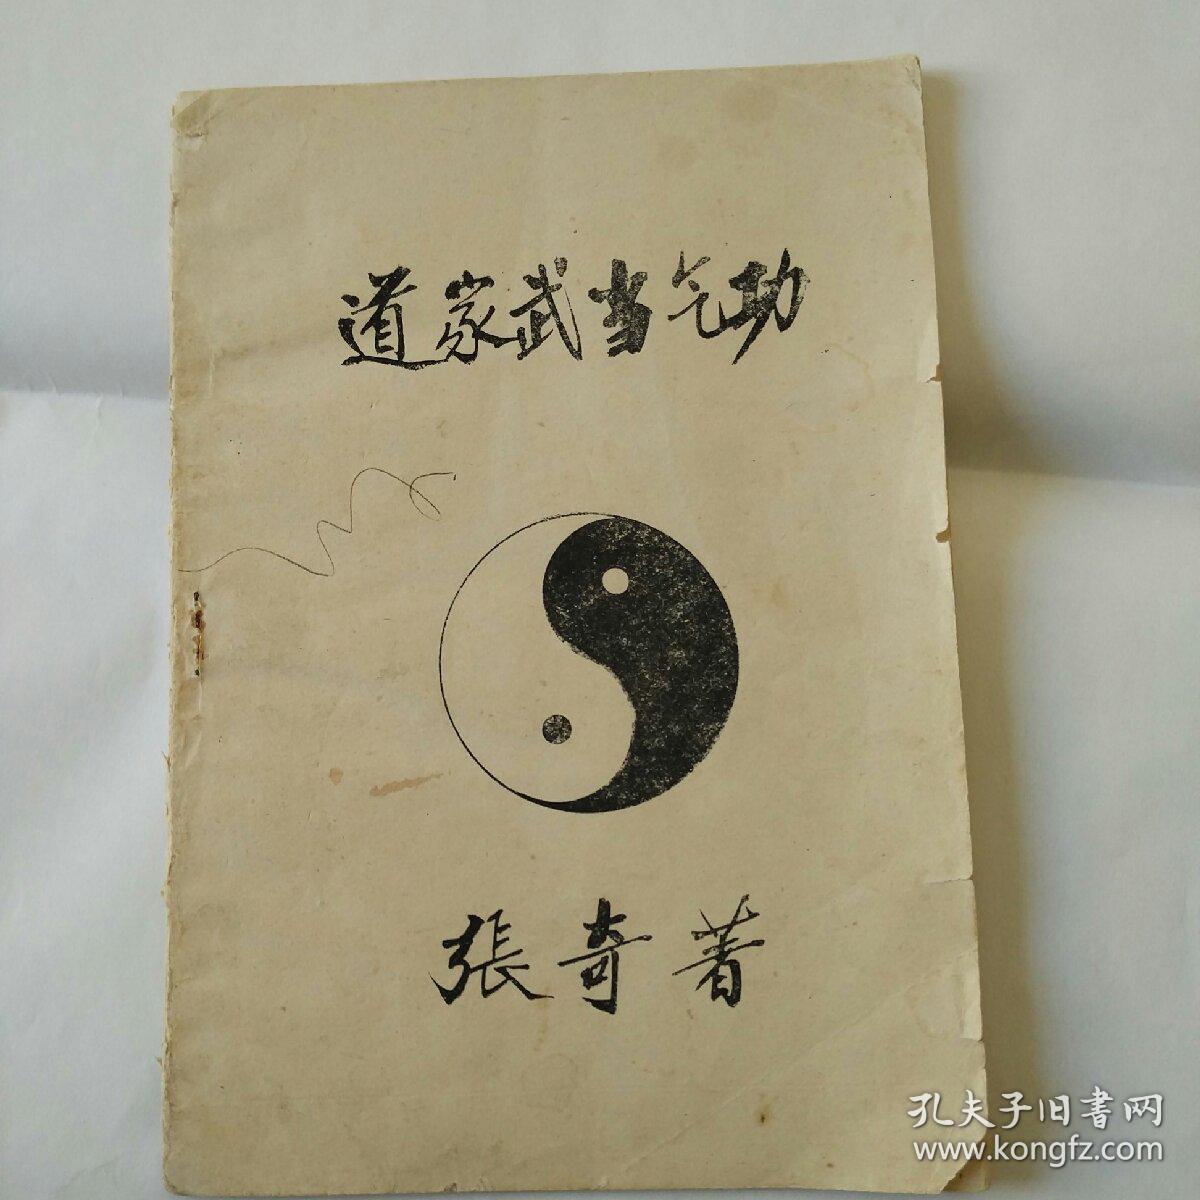 道家武当气功
張奇著
孔夫子旧書网
www.kongfz.com